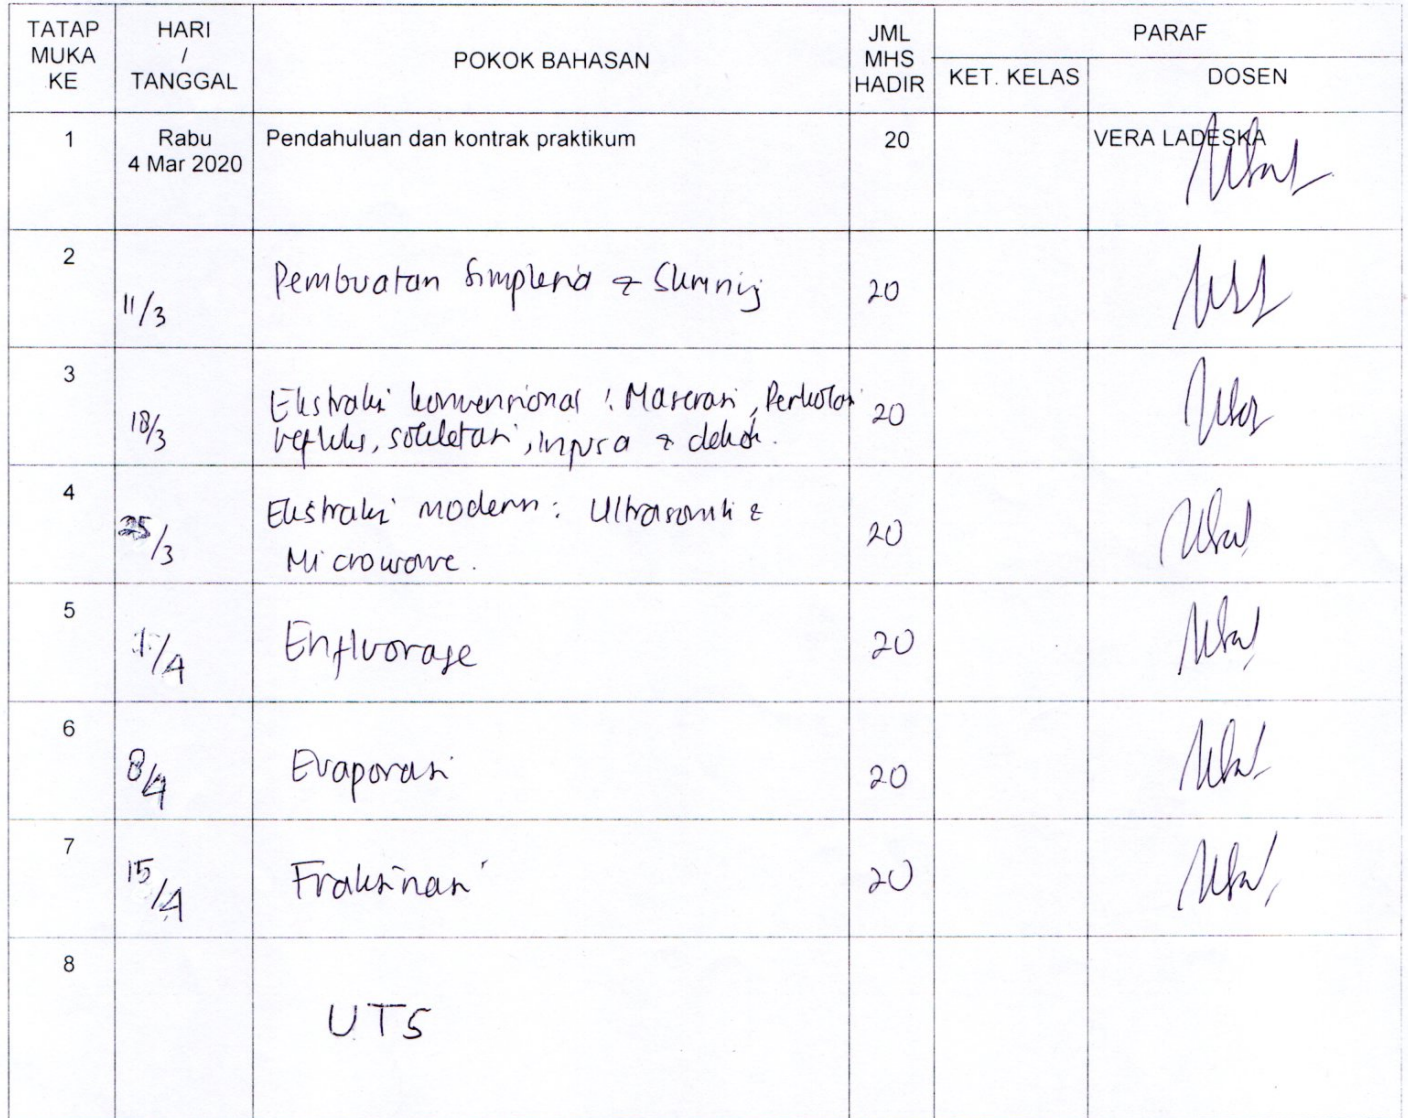 TATAP MUKA KE
HARI / TANGGAL
POKOK BAHASAN
JML MHS HADIR
PARAF
KET. KELAS
DOSEN
1 Rabu 4 Mar 2020 Pendahuluan dan kontrak praktikum 20 VERA LADESKA
2 11/3 Pembuatan Simplisia & 20
3 18/3 Ekstraksi konvensional : Maserasi, Perkolasi 20
refluks, sokletasi, infusa & dekok.
4 25/3 Ekstraksi modern : Ultrasonik & 20
Microwave.
5 1/4 Enfluorage 20
6 8/4 Evaporasi 20
7 15/4 Fraksinasi 20
8 UTS